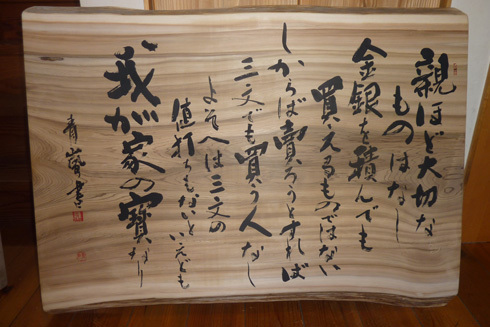 親ほど大切な
ものはなし
金銀を積んでも
買えるものではない
しからば賣ろうとすれば
三文でも買う人なし
よそへは三文の
値打ちもないといえども
我が家の寳なり
青藝書